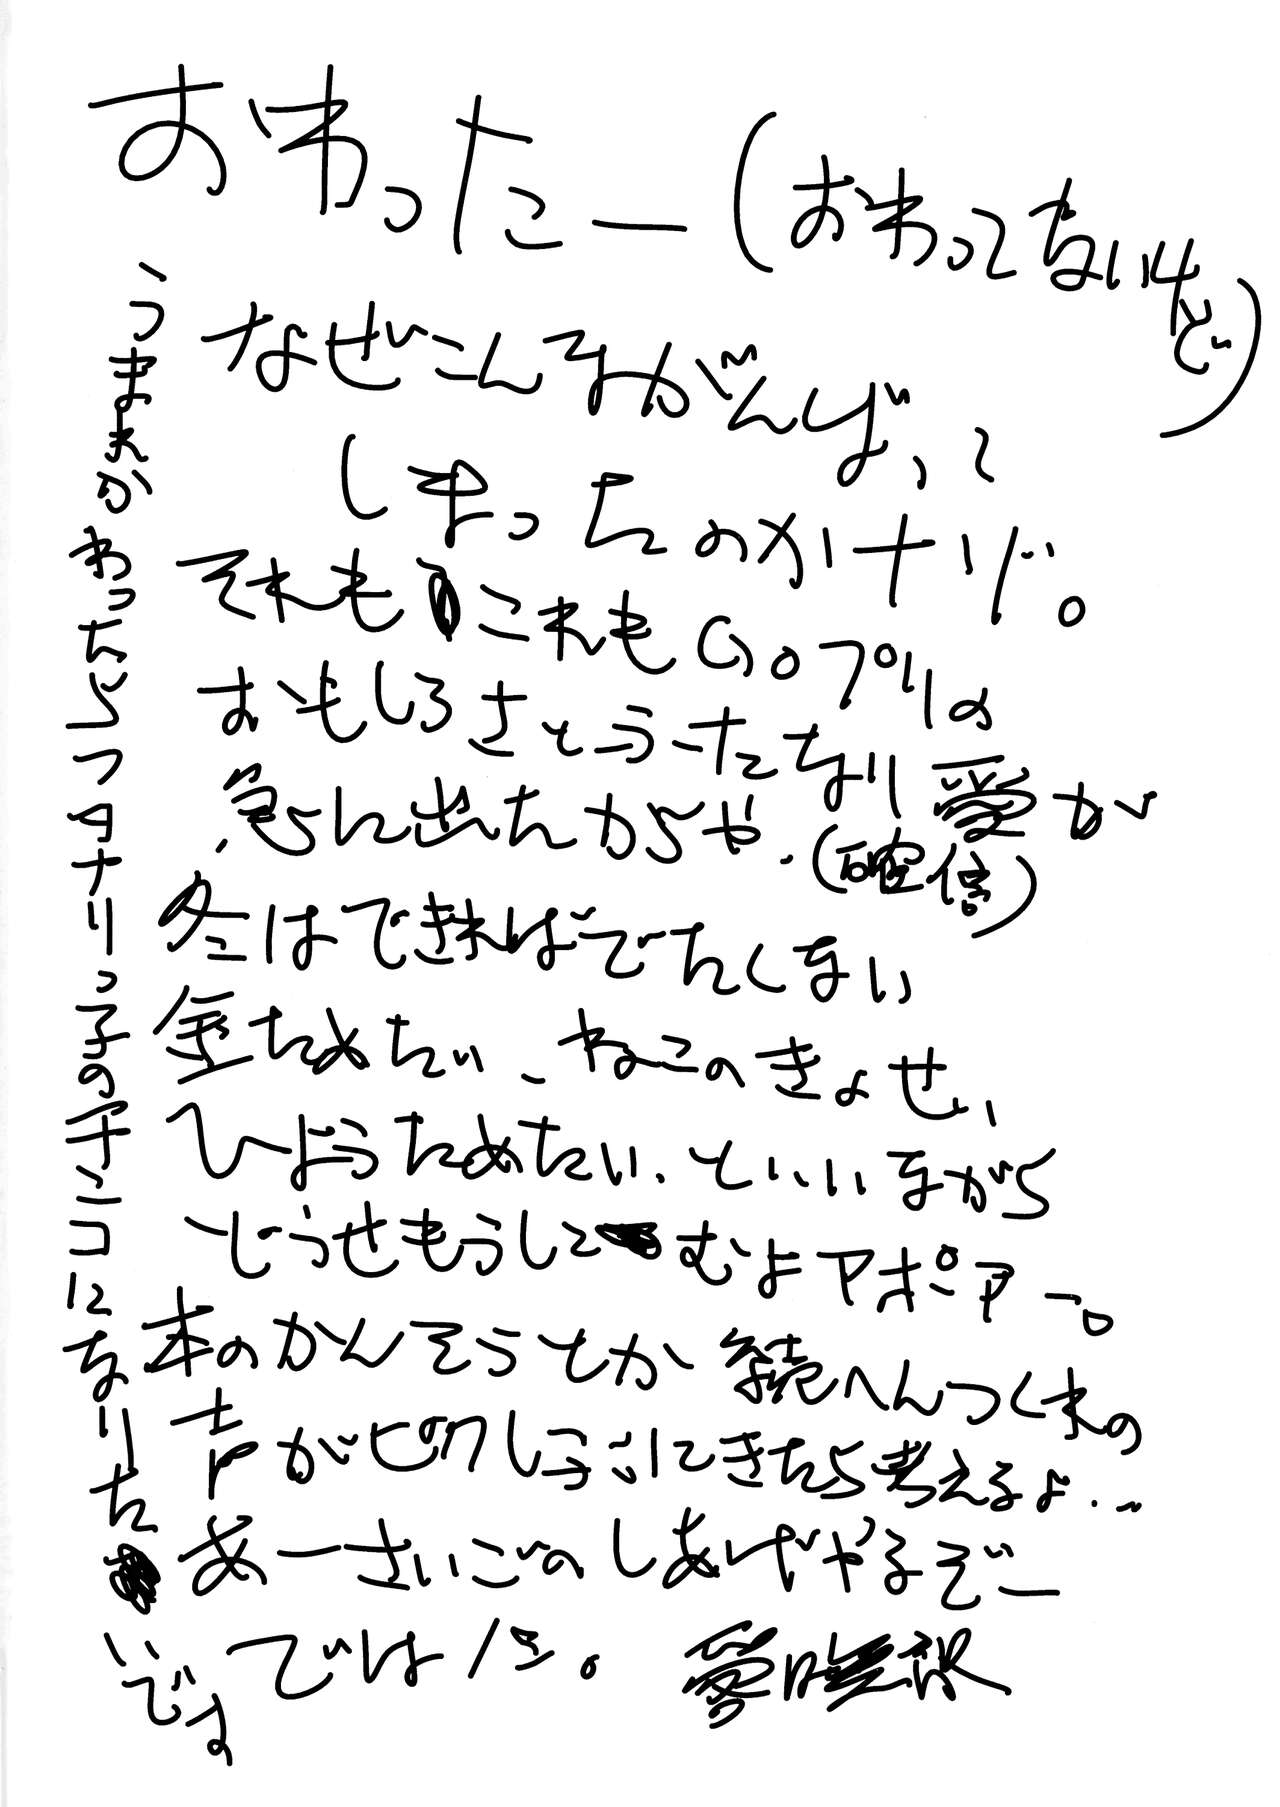 おわったー(おわってないけど)
なぜこんながんばって
しまったのかナゾ。
それもこれもGoプリの
おもしろさとうったなり愛が
急られ出たからや.(確信)
冬はできればでたくない
金ためたい、ねこのきょせい
ひようためたい、といいながら
どうせもうしこむよアポアアー。
本のかんそうとか続へんつくれの
声がピクシブにきたら考えるよ…
あーさいごのしあげやるぞー
では
うまれかわったらフタナリっ子のチンコになりたいでよ